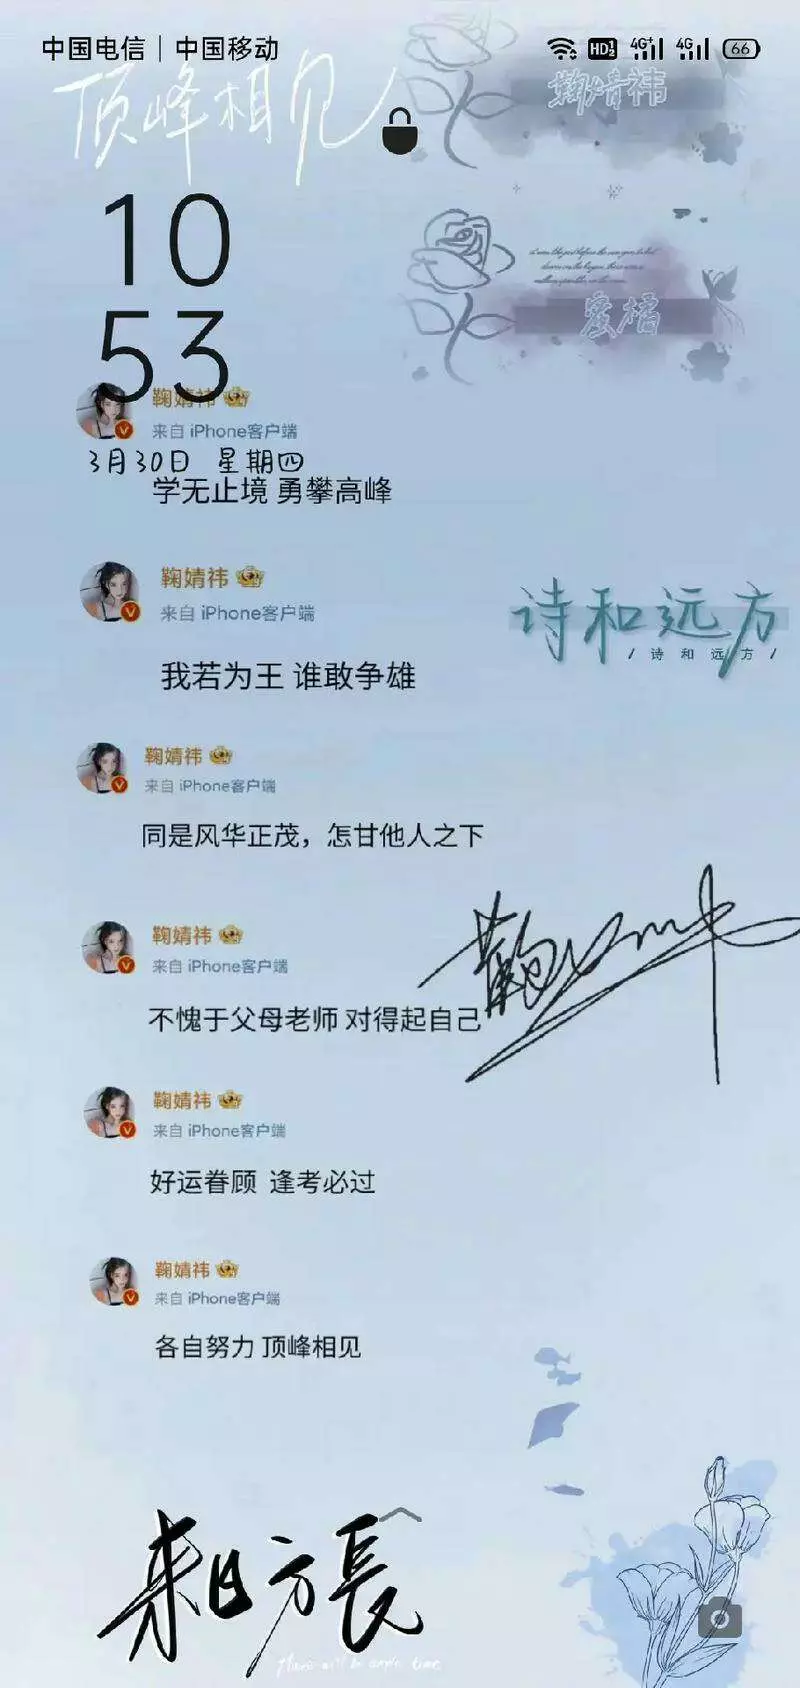 中国电信 | 中国移动
HD 4G+ 4G 66
顶峰相见
鞠婧祎
10
53
蜜橘
鞠婧祎
来自 iPhone客户端
3月30日 星期四
学无止境 勇攀高峰
鞠婧祎
来自 iPhone客户端
我若为王 谁敢争雄
诗和远方
/ 诗 和 远 方 /
鞠婧祎
来自 iPhone客户端
同是风华正茂，怎甘他人之下
鞠婧祎
来自 iPhone客户端
不愧于父母老师 对得起自己
鞠婧祎
鞠婧祎
来自 iPhone客户端
好运眷顾 逢考必过
鞠婧祎
来自 iPhone客户端
各自努力 顶峰相见
来日方長
There will be ample time